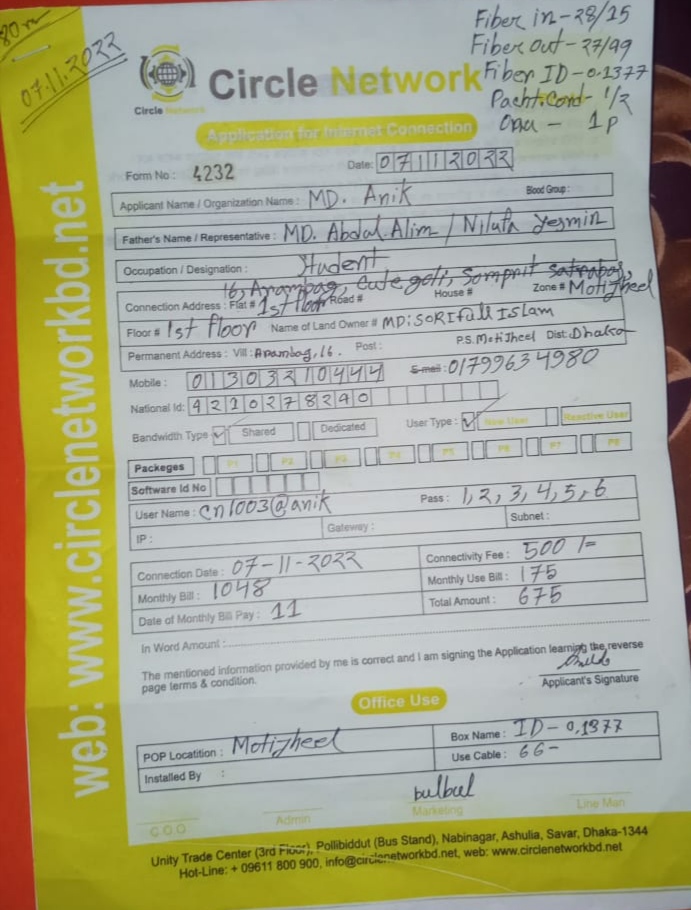 80m
07.11.2022
Fiber in-28/15
Fiber out-27/99
Fiber ID-0.1377
Patch.Cord-1/2
Onu - 1P
Circle Network
Circle Network
Application for Internet Connection
Form No : 4232
Date: 07112022
Applicant Name / Organization Name : MD. Anik Blood Group :
Father's Name / Representative : MD. Abdul Alim / Nilufa Yesmin
Occupation / Designation : Student
16, Arambag,
Connection Address : Flat # 1st floor Road # House # Zone # Motijheel
Floor # 1st floor Name of Land Owner # MD: SORIfull Islam
Permanent Address : Vill: Arambag, 16. Post : P.S. Motijheel Dist: Dhaka
Mobile : 01303210444 E-mail : 01799634980
National Id: 4210278240
Bandwidth Type Shared Dedicated User Type : New User Reactive User
Packeges P1 P2 P3 P4 P5 P6 P7 P8
Software Id No
User Name : cn1003@anik Pass : 1,2,3,4,5,6
IP : Gateway : Subnet :
Connection Date : 07-11-2022 Connectivity Fee : 500/=
Monthly Bill : 1048 Monthly Use Bill : 175
Date of Monthly Bill Pay : 11 Total Amount : 675
In Word Amount :
The mentioned information provided by me is correct and I am signing the Application learning the reverse
page terms & condition.
Applicant's Signature
Office Use
POP Locatition : Motijheel Box Name : ID-0,1377
Installed By : Use Cable : 66-
bulbul
C.O.O Admin Marketing Line Man
Unity Trade Center (3rd Floor), Pollibiddut (Bus Stand), Nabinagar, Ashulia, Savar, Dhaka-1344
Hot-Line: + 09611 800 900, info@circlenetworkbd.net, web: www.circlenetworkbd.net
web: www.circlenetworkbd.net